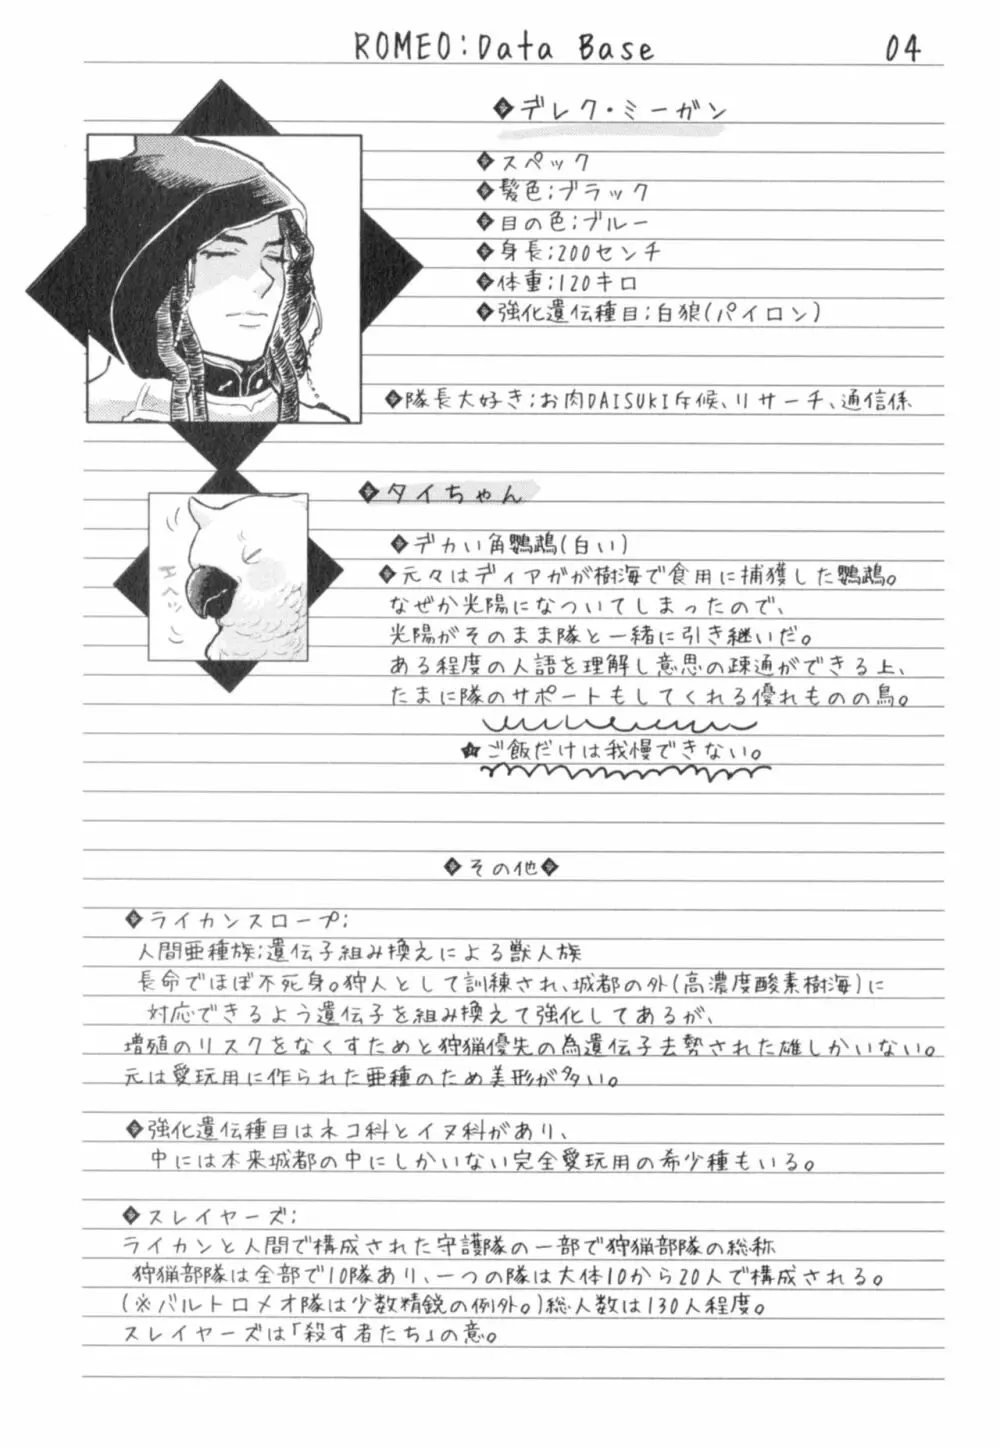 ROMEO:Data Base
04
◆デレク・ミーガン
◆スペック
◆髪色;ブラック
◆目の色;ブルー
◆身長;200センチ
◆体重;120キロ
◆強化遺伝種目;白狼(パイロン)
◆隊長大好き;お肉DAISUKI斥候、リサーチ、通信係
◆タイちゃん
エヘッ
◆デカい角鸚鵡(白い)
◆元々はディアガが樹海で食用に捕獲した鸚鵡。
なぜか光陽になついてしまったので、
光陽がそのまま隊と一緒に引き継いだ。
ある程度の人語を理解し意思の疎通ができる上、
たまに隊のサポートもしてくれる優れものの鳥。
★ご飯だけは我慢できない。
◆その他◆
◆ライカンスロープ;
人間亜種族;遺伝子組み換えによる獣人族
長命でほぼ不死身。狩人として訓練され、城都の外(高濃度酸素樹海)に
対応できるよう遺伝子を組み換えて強化してあるが、
増殖のリスクをなくすためと狩猟優先の為遺伝子去勢された雄しかいない。
元は愛玩用に作られた亜種のため美形が多い。
◆強化遺伝種目はネコ科とイヌ科があり、
中には本来城都の中にしかいない完全愛玩用の希少種もいる。
◆スレイヤーズ;
ライカンと人間で構成された守護隊の一部で狩猟部隊の総称
狩猟部隊は全部で10隊あり、一つの隊は大体10から20人で構成される。
(※バルトロメオ隊は少数精鋭の例外。)総人数は130人程度。
スレイヤーズは「殺す者たち」の意。